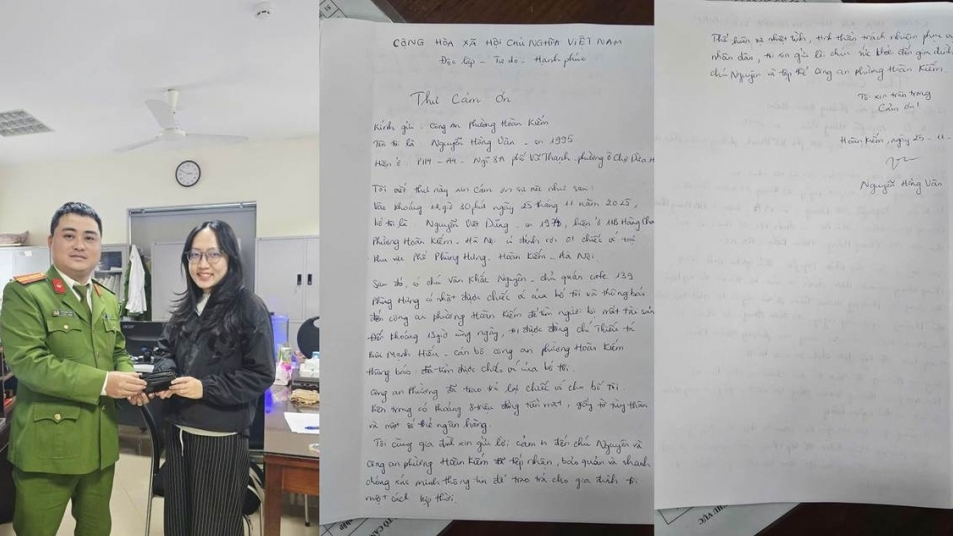 CỘNG HÒA XÃ HỘI CHỦ NGHĨA VIỆT NAM
Độc lập - Tự do - Hạnh phúc
Thư Cảm ơn
Kính gửi: Công An Phường Hoàn Kiếm
Tên tôi là: Nguyễn Hồng Vân - sn 1995
Hiện ở: P114 - A4 - Ngõ 8A phố Vũ Thạnh, phường Ô Chợ Dừa, H
Tôi viết thư này xin cảm ơn sự việc như sau:
Vào khoảng giờ 30 phút ngày 25 tháng 11 năm 2025,
bố tôi là Nguyễn Việt Dũng - sn, hiện ở 11B Hàng
Phường Hoàn Kiếm - Hà Nội có đánh rơi 01 chiếc ví tại
khu vực Phố Phùng Hưng, Hoàn Kiếm - Hà Nội.
Sau đó, có chú Văn Khắc Nguyên - chủ quán cafe 139
Phùng Hưng có nhặt được chiếc ví của bố tôi và thông báo
đến công an phường Hoàn Kiếm để tìm người bị mất tài sản
Đến khoảng 15 giờ cùng ngày, tôi được đồng chí Thiếu tá
Bùi Mạnh Hiếu - cán bộ công an phường Hoàn Kiếm
thông báo đã tìm được chiếc ví của bố tôi.
Công an Phường đã trao trả lại chiếc ví cho bố tôi
bên trong có khoảng 8 triệu đồng tiền mặt, giấy tờ tùy thân
và một số thẻ ngân hàng.
Tôi cùng gia đình xin gửi lời cảm ơn đến chú Nguyên và
công an phường Hoàn Kiếm đã tiếp nhận, bảo quản và nhanh
chóng xác minh thông tin để trao trả cho gia đình tôi
một cách kịp thời.
Thể hiện sự nhiệt tình, tinh thần trách nhiệm phục v
nhân dân, tôi xin gửi lời chúc sức khỏe đến gia đình
chú Nguyên và tập thể Công an phường Hoàn Kiếm.
Tôi xin trân trọng
Cảm ơn!
Hoàn Kiếm, ngày 25 - 11 -
Nguyễn Hồng Vân